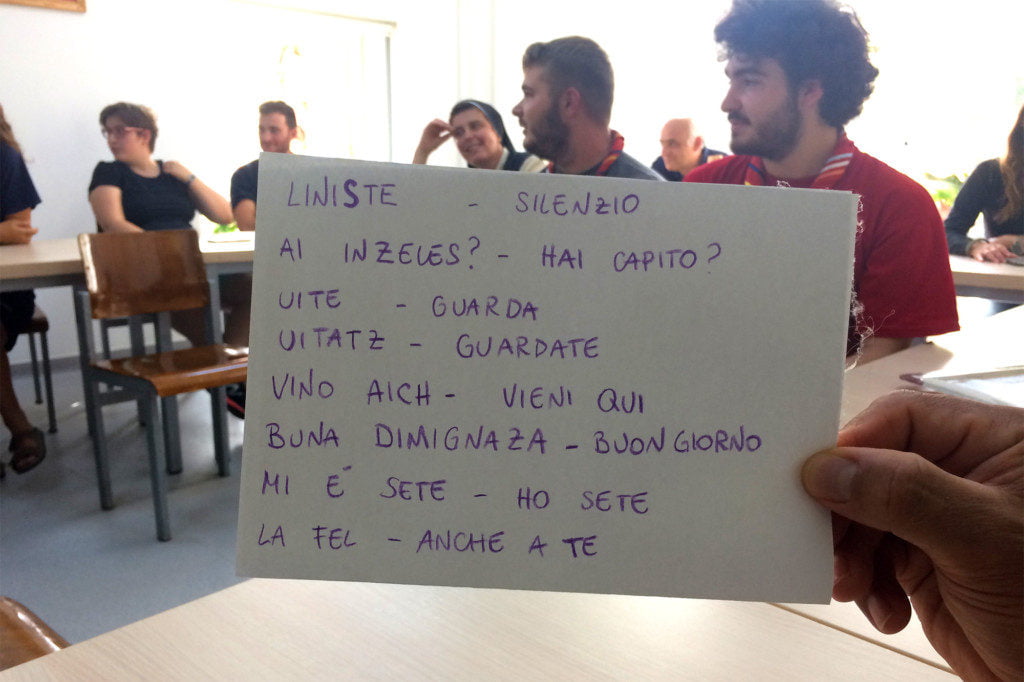 LINISTE - SILENZIO
AI INZELES? - HAI CAPITO?
UITE - GUARDA
UITATZ - GUARDATE
VINO AICH - VIENI QUI
BUNA DIMIGNAZA - BUONGIORNO
MI É SETE - HO SETE
LA FEL - ANCHE A TE